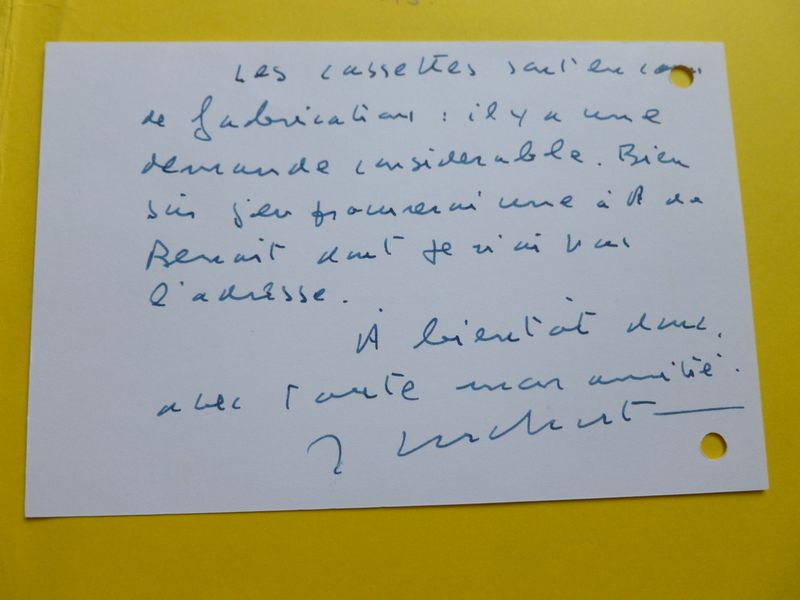 Les cassettes sont en cours
de fabrication : il y a une
demande considerable. Bien
sûr j'en fournirai une à A de
Benoist dont je n'ai pas
l'adresse.
À bientôt donc,
avec toute mon amitié.
J